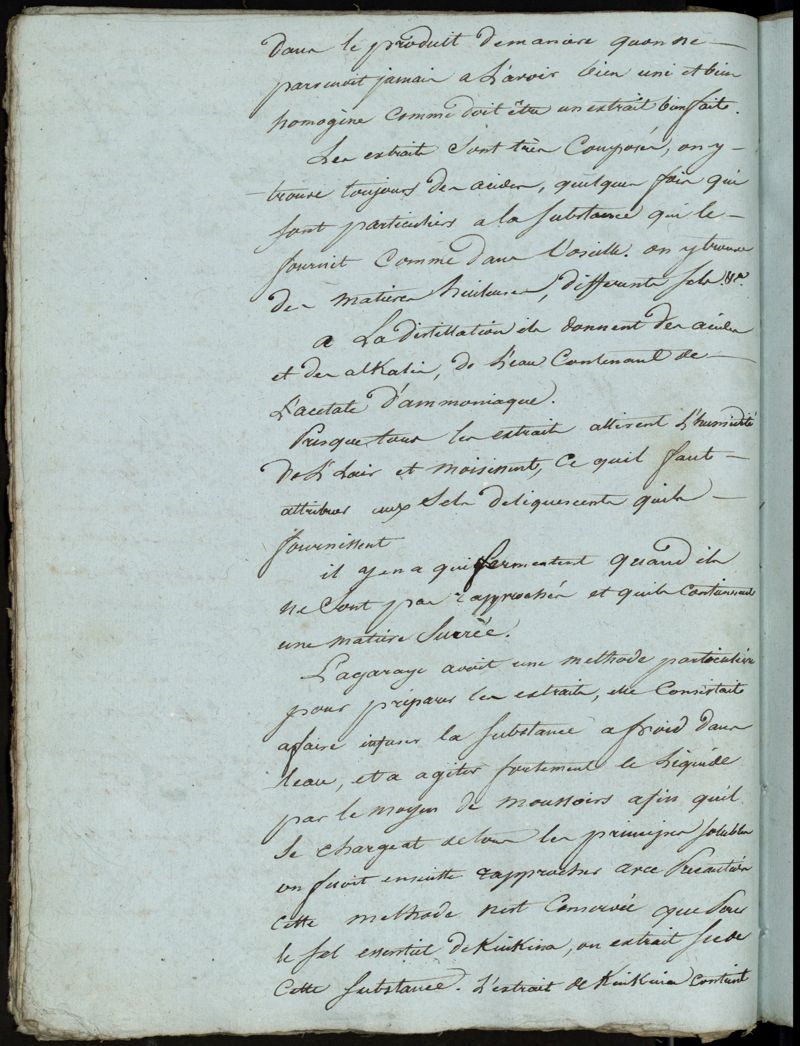 dans le produit de maniere quon ne —
parvenoit jamais a L'avoir bien uni et bien
homogène comme doit être un extrait bien fait.
Les extraits Sont très Composés, on y —
trouve toujours des acides, quelques fois qui
sont particuliers a la substance qui le —
fournit Comme dans l'oseille. on y trouve
des matieres huileuses, differents sels. &a.
a La distillation ils donnent des acides
et des alkalis, de L'eau Contenant de —
L'acetate d'ammoniaque.
Presque tous les extraits attirent L'humidité
de L'air et moisissent, Ce quil faut —
attribuer aux Sels deliquescents quils —
fournissent
il y en a qui fermentent quand ils
ne Sont pas rapprochés et quils Contiennent
une matière Sucrée.
Lagaraye avoit une methode particulière
pour préparer les extraits, elle Consistait
a faire infuser la substance a froid dans
leau, et a agiter fortement le Liquide
par le moyen de moussoirs afin quil
Se chargeat de tous les principes solubles
on fesoit ensuitte rapprocher avec Precaution
Cette methode n'est Conservée que Pour
le sel essentiel de Kinkina, ou extrait sec de
Cette substance. L'extrait de Kinkina Contient